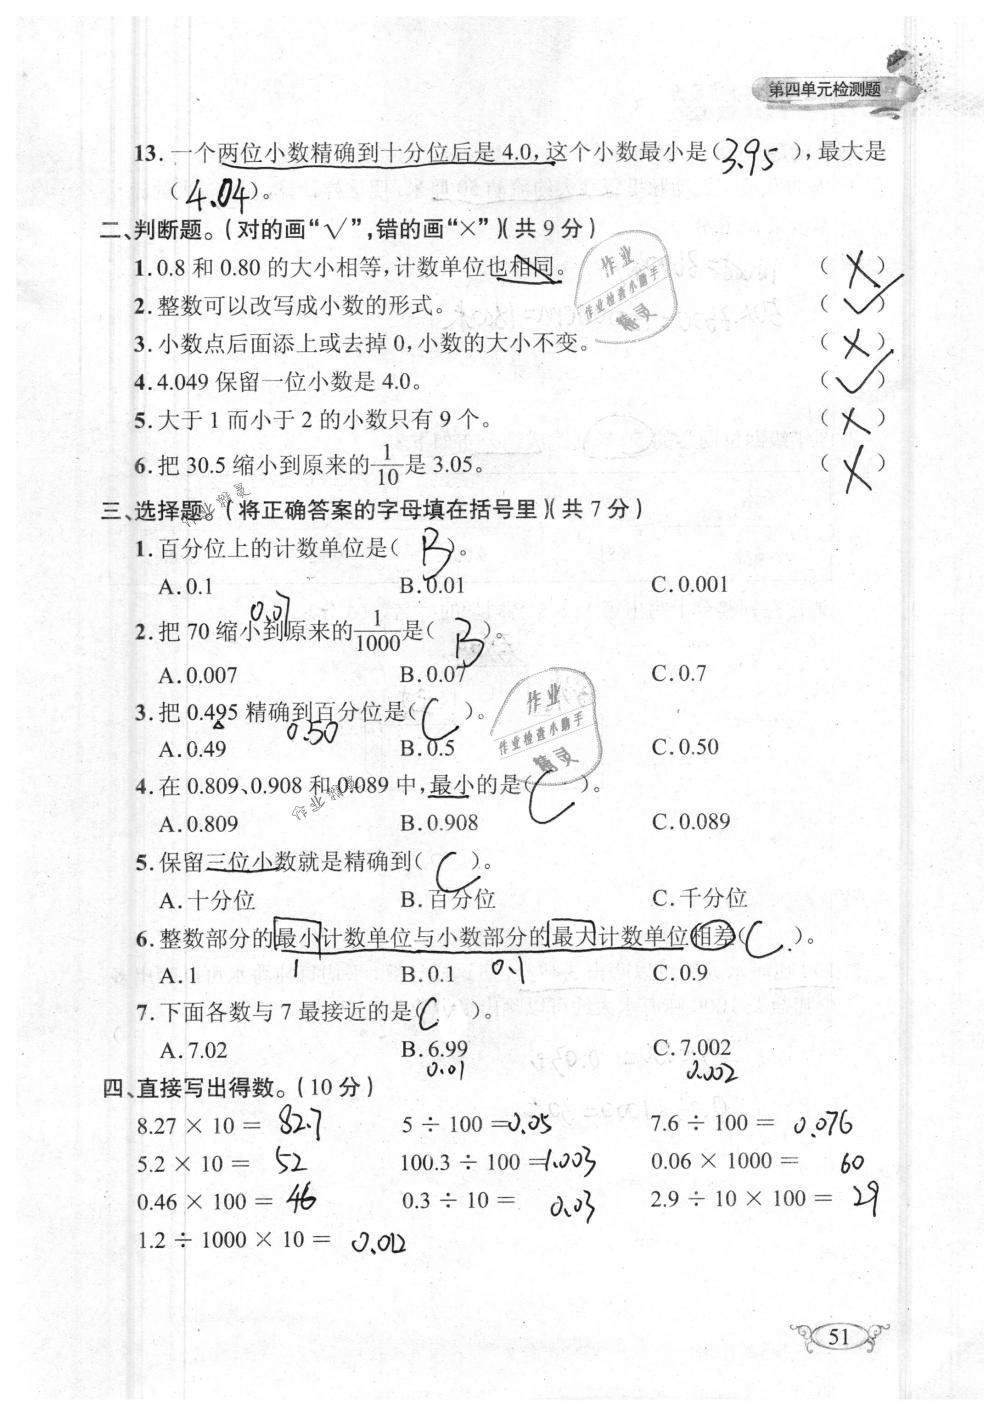 第四单元检测题
13. 一个两位小数精确到十分位后是 4.0,这个小数最小是( 3.95 ),最大是
( 4.04 )。
二、判断题。(对的画“√”,错的画“×”)(共 9 分)
1. 0.8 和 0.80 的大小相等,计数单位也相同。 ( × )
2. 整数可以改写成小数的形式。 ( √ )
3. 小数点后面添上或去掉 0,小数的大小不变。 ( × )
4. 4.049 保留一位小数是 4.0。 ( √ )
5. 大于 1 而小于 2 的小数只有 9 个。 ( × )
6. 把 30.5 缩小到原来的 1/10 是 3.05。 ( × )
作业 作业检查小助手 精灵
三、选择题。(将正确答案的字母填在括号里)(共 7 分)
作业精灵
1. 百分位上的计数单位是( B )。
A. 0.1 B. 0.01 C. 0.001
0.07
2. 把 70 缩小到原来的 1/1000 是( B )。
A. 0.007 B. 0.07 C. 0.7
3. 把 0.495 精确到百分位是( C )。
0.50
A. 0.49 B. 0.5 C. 0.50
作业 作业检查小助手 精灵
4. 在 0.809、0.908 和 0.089 中,最小的是( C )。
作业精灵
A. 0.809 B. 0.908 C. 0.089
5. 保留三位小数就是精确到( C )。
A. 十分位 B. 百分位 C. 千分位
6. 整数部分的最小计数单位与小数部分的最大计数单位相差( C )。
1 0.1
A. 1 B. 0.1 C. 0.9
7. 下面各数与 7 最接近的是( C )。
A. 7.02 B. 6.99 C. 7.002
0.01 0.002
四、直接写出得数。(10 分)
8.27 × 10 = 82.7 5 ÷ 100 = 0.05 7.6 ÷ 100 = 0.076
5.2 × 10 = 52 100.3 ÷ 100 = 1.003 0.06 × 1000 = 60
0.46 × 100 = 46 0.3 ÷ 10 = 0.03 2.9 ÷ 10 × 100 = 29
1.2 ÷ 1000 × 10 = 0.012
51